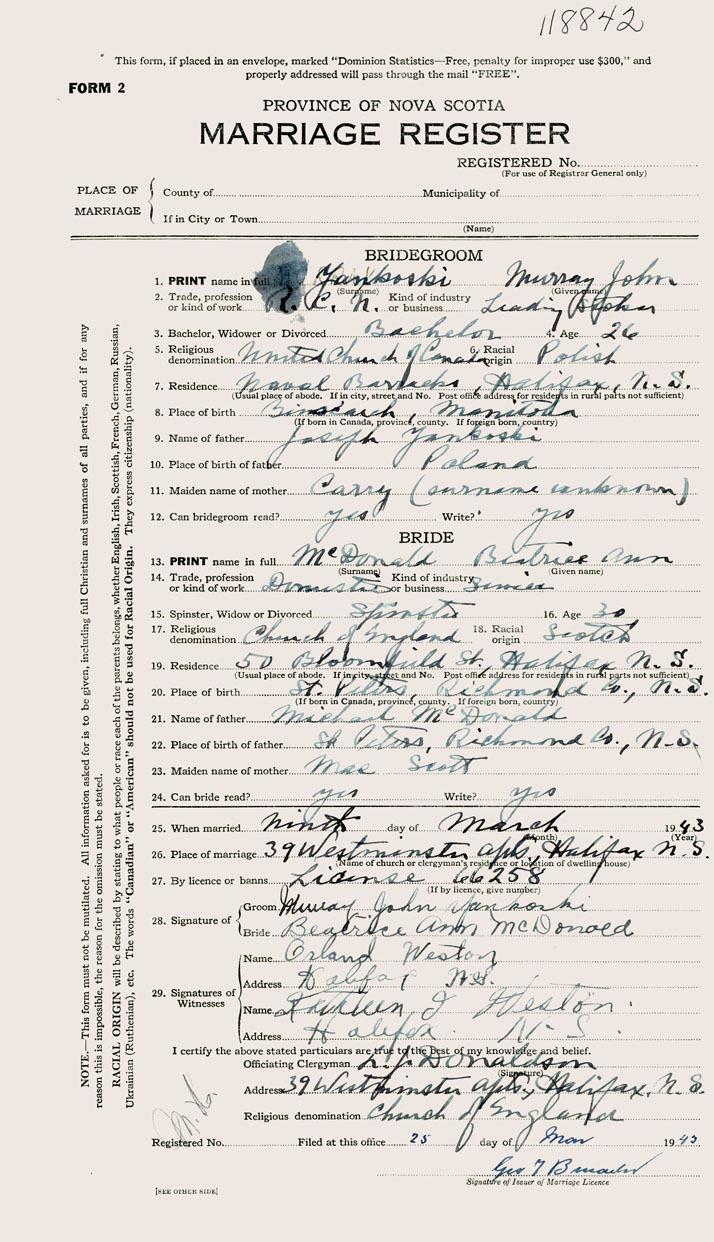 118842
This form, if placed in an envelope, marked "Dominion Statistics—Free, penalty for improper use $300," and
properly addressed will pass through the mail "FREE".
FORM 2
PROVINCE OF NOVA SCOTIA
MARRIAGE REGISTER
REGISTERED No.
(For use of Registrar General only)
PLACE OF MARRIAGE
County of Municipality of
If in City or Town
(Name)
BRIDEGROOM
1. PRINT name in full Yankoski Murray John
(Surname) (Given name)
2. Trade, profession or kind of work R. C. N. Kind of industry or business Leading Stoker
3. Bachelor, Widower or Divorced Bachelor 4. Age 26
5. Religious denomination United Church of Canada 6. Racial origin Polish
7. Residence Naval Barracks, Halifax, N. S.
(Usual place of abode. If in city, street and No. Post office address for residents in rural parts not sufficient)
8. Place of birth Binscarth, Manitoba
(If born in Canada, province, county. If foreign born, country)
9. Name of father Joseph Yankoski
10. Place of birth of father Poland
11. Maiden name of mother Carry (surname unknown)
12. Can bridegroom read? yes Write? yes
BRIDE
13. PRINT name in full McDonald Beatrice Ann
(Surname) (Given name)
14. Trade, profession or kind of work Domestic Kind of industry or business Service
15. Spinster, Widow or Divorced Spinster 16. Age 30
17. Religious denomination Church of England 18. Racial origin Scotch
19. Residence 50 Bloomfield St., Halifax N. S.
(Usual place of abode. If in city, street and No. Post office address for residents in rural parts not sufficient)
20. Place of birth St. Peters, Richmond Co., N. S.
(If born in Canada, province, county. If foreign born, country)
21. Name of father Michael McDonald
22. Place of birth of father St Peters, Richmond Co., N.S.
23. Maiden name of mother Mae Scott
24. Can bride read? yes Write? yes
25. When married ninth day of March 1943
(Month) (Year)
26. Place of marriage 39 Westminster apts., Halifax N. S.
(Name of church or clergyman's residence or location of dwelling house)
27. By licence or banns License 66258
(If by licence, give number)
28. Signature of Groom Murray John Yankoski
Bride Beatrice Ann McDonald
29. Signatures of Witnesses
Name Orland Weston
Address Halifax N.S.
Name Kathleen J Weston
Address Halifax N-S.
I certify the above stated particulars are true to the best of my knowledge and belief.
Officiating Clergyman Donaldson
(Signature)
Address 39 Westminster apts., Halifax, N. S.
Religious denomination Church of England
Registered No. Filed at this office 25 day of Mar 1943
Geo T
Signature of Issuer of Marriage Licence
[SEE OTHER SIDE]
NOTE.—This form must not be mutilated. All information asked for is to be given, including full Christian and surnames of all parties, and if for any
reason this is impossible, the reason for the omission must be stated.
RACIAL ORIGIN will be described by stating to what people or race each of the parents belongs, whether English, Irish, Scottish, French, German, Russian,
Ukrainian (Ruthenian), etc. The words "Canadian" or "American" should not be used for Racial Origin. They express citizenship (nationality).